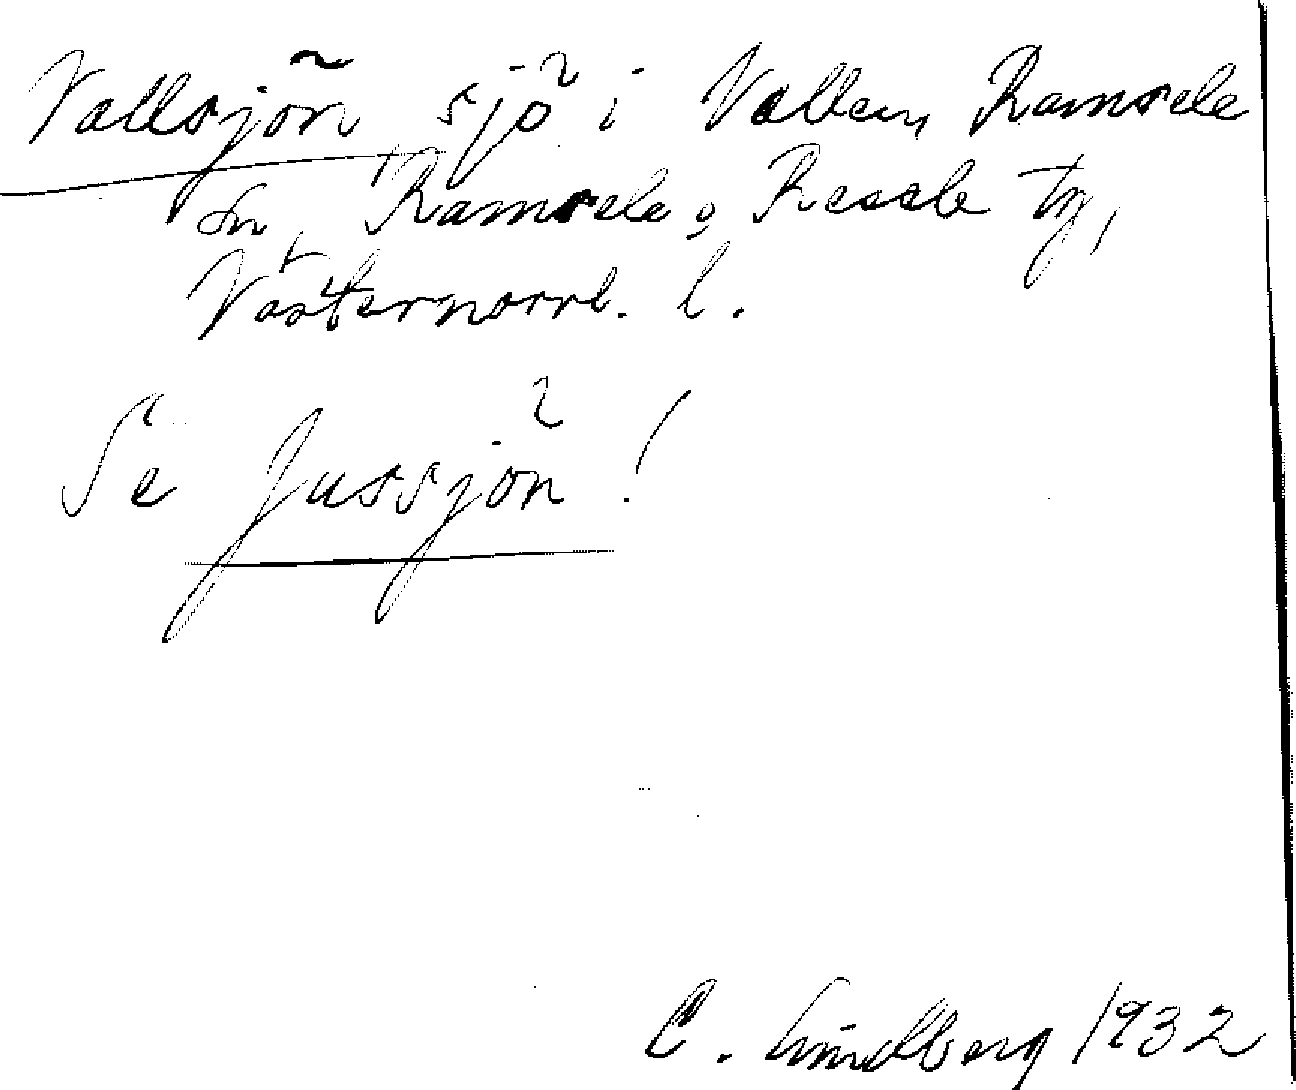 Vallsjön, sjö i Vallen, Ramsele
sn, Ramsele o Resele tg,
Västernorrl. l.
Se Jussjön!
C. Lindberg 1932